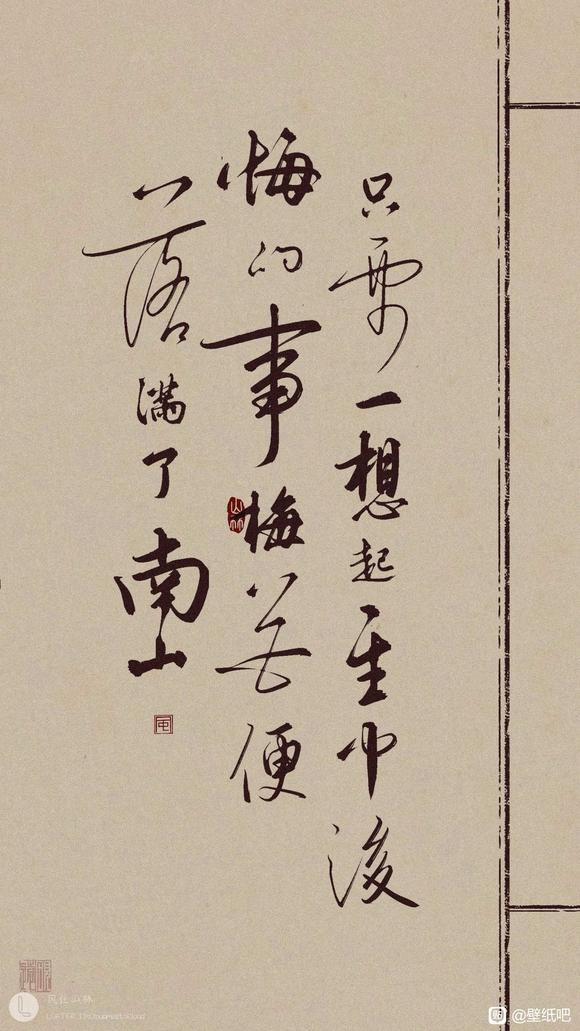 只要一想起一生中後
悔的事梅花便
落滿了南山
山林
@壁纸吧